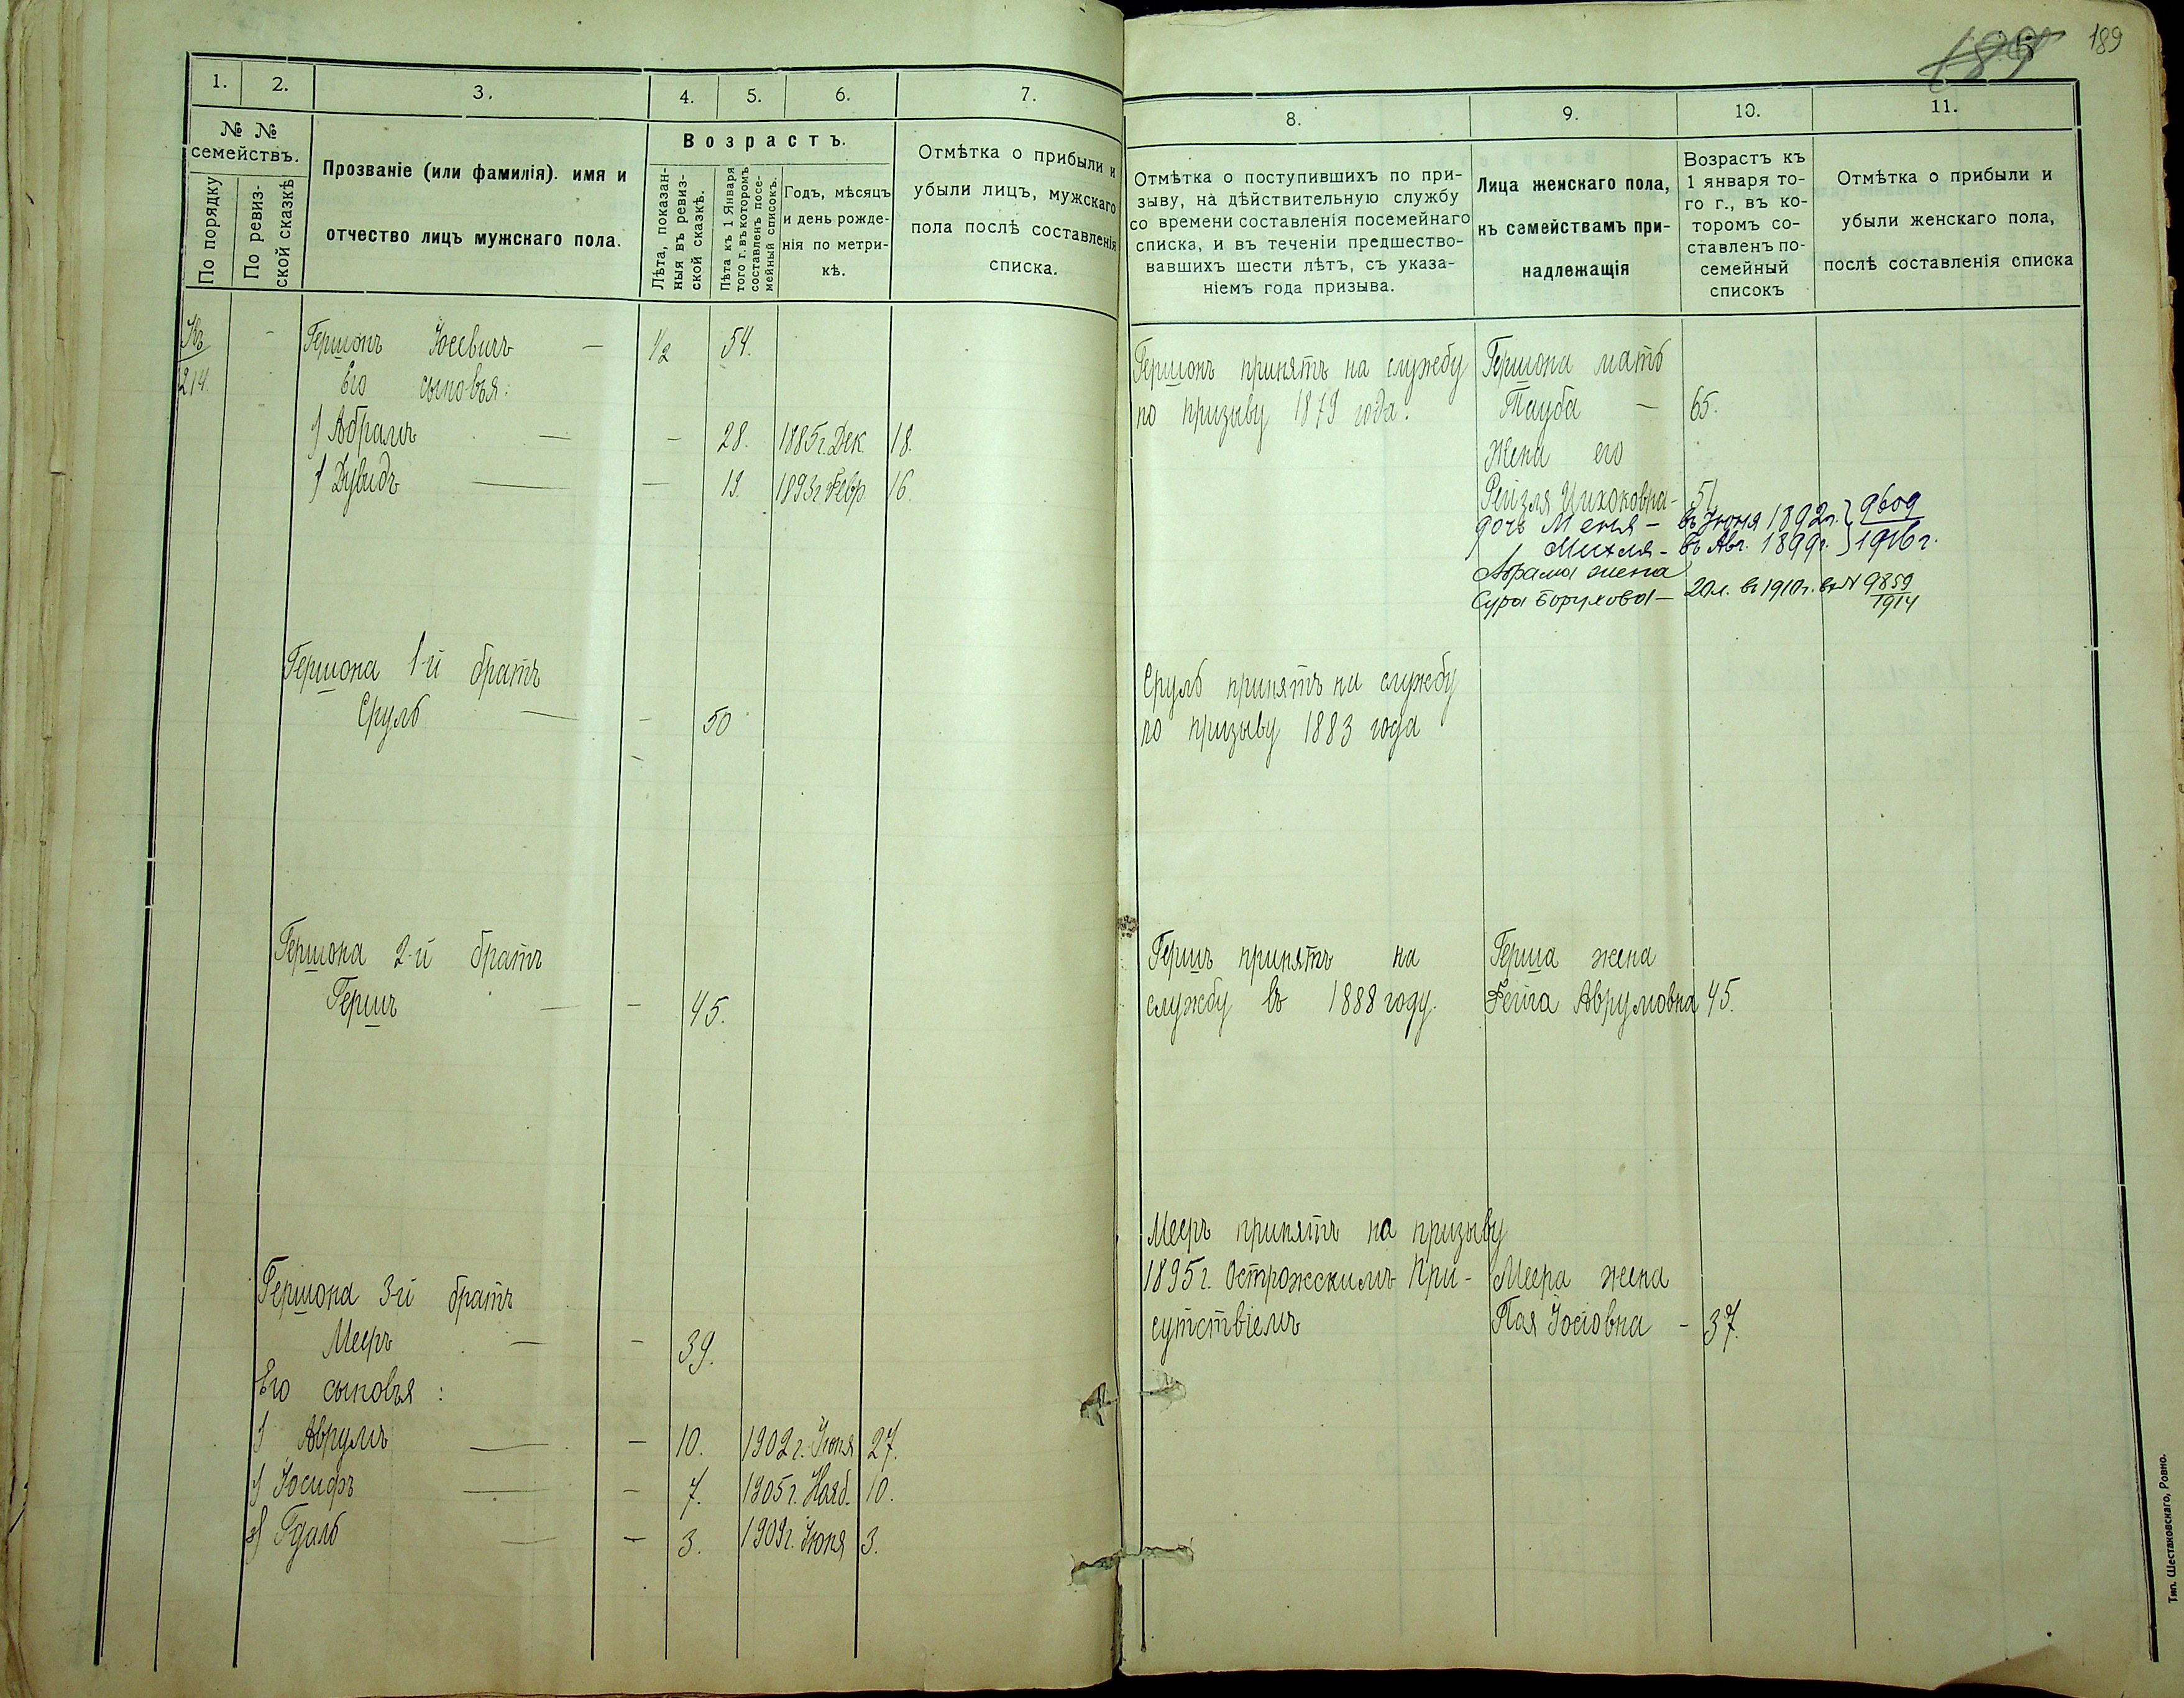 189
189
1.
2.
3.
4.
5.
6.
7.
№ №
семействъ.
По порядку
По ревиз-
ской сказкѣ
Прозваніе (или фамилія). имя и
отчество лицъ мужскаго пола.
Возрастъ.
Лѣта, показан-
ныя въ ревиз-
ской сказкѣ.
Лѣта къ 1 Января
того г. въ которомъ
составленъ посе-
мейный списокъ.
Годъ, мѣсяцъ
и день рожде-
нія по метри-
кѣ.
Отмѣтка о прибыли и
убыли лицъ, мужскаго
пола послѣ составленія
списка.
214.
-
Гершонъ Іосевичъ — 1/2 54.
Его сыновья:
1) Абрамъ — — 28. 1885г. Дек. 18.
2) Дувидъ — — 19. 1893г. Февр. 16.
Гершона 1-й братъ
Сруль — - 50
Гершона 2-й братъ
Гершъ — - 45.
Гершона 3-й братъ
Мееръ — - 39.
Его сыновья:
1) Аврумъ — - 10. 1902г. Іюня 27.
2) Іосифъ — - 7. 1905г. Нояб. 10.
3) Гдаль — - 3. 1909г. Іюня 3.
8.
9.
10.
11.
Отмѣтка о поступившихъ по при-
зыву, на дѣйствительную службу
со времени составленія посемейнаго
списка, и въ теченіи предшество-
вавшихъ шести лѣтъ, съ указа-
ніемъ года призыва.
Лица женскаго пола,
къ семействамъ при-
надлежащія
Возрастъ къ
1 января то-
го г., въ ко-
торомъ со-
ставленъ по-
семейный
списокъ
Отмѣтка о прибыли и
убыли женскаго пола,
послѣ составленія списка
Гершонъ принятъ на службу
по призыву 1879 года.
Гершона мать
Тауба — 65.
Жена его
Рейзля Ицхоковна - 51
дочь Менья - въ Іюня 1892г. } 9609
Михля - въ Авг. 1899г. } 1916г.
Абрама жена
Сура Борухова — 20л. въ 1910г. вх№ 9859
1914
Сруль принятъ на службу
по призыву 1883 года
Гершъ принятъ на
службу въ 1888 году.
Герша жена
Фейга Аврумовна 45.
Мееръ принятъ на призыву
1895г. Острожскимъ При-
сутствіемъ
Меера жена
Пая Іосіовна - 37.
Тип. Шестаковскаго, Ровно.